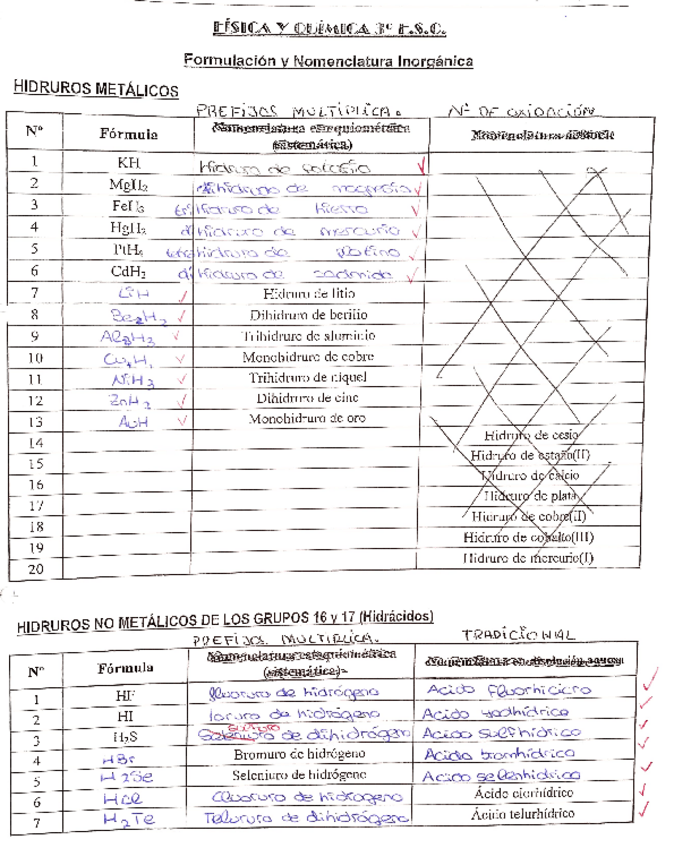 FÍSICA Y QUÍMICA 3º E.S.O.
Formulación y Nomenclatura Inorgánica
HIDRUROS METÁLICOS
PREFIJOS MULTIPLICA. Nº DE OXIDACIÓN
Nº Fórmula Nomenclatura estequiométrica (sistemática) Nomenclatura de Stock
1 KH Hidruro de potasio
2 MgH₂ dihidruro de magnesio
3 FeH₃ trihidruro de hierro
4 HgH₂ dihidruro de mercurio
5 PtH₄ tetrahidruro de platino
6 CdH₂ dihidruro de cadmio
7 LiH Hidruro de litio
8 Be₂H₂ Dihidruro de berilio
9 Al₃H₃ Trihidruro de aluminio
10 Cu₁H₁ Monohidruro de cobre
11 NiH₃ Trihidruro de níquel
12 ZnH₂ Dihidruro de cinc
13 AuH Monohidruro de oro
14 Hidruro de cesio
15 Hidruro de estaño(II)
16 Hidruro de calcio
17 Hidruro de plata
18 Hidruro de cobre(II)
19 Hidruro de cobalto(III)
20 Hidruro de mercurio(I)
HIDRUROS NO METÁLICOS DE LOS GRUPOS 16 y 17 (Hidrácidos)
PREFIJOS MULTIPLICA. TRADICIONAL
Nº Fórmula Nomenclatura estequiométrica (sistemática)
1 HF fluoruro de hidrógeno Acido
2 HI ioruro de hidrógeno Acido yodhídrico
3 H₂S sulfuro de dihidrógeno Acido sulfhídrico
4 HBr Bromuro de hidrógeno Acido bromhídrico
5 H₂Se Seleniuro de hidrógeno Acido selenhídrico
6 HCl Cluoruro de hidrogeno Ácido clorhídrico
7 H₂Te Telururo de dihidrógeno Ácido telurhídrico